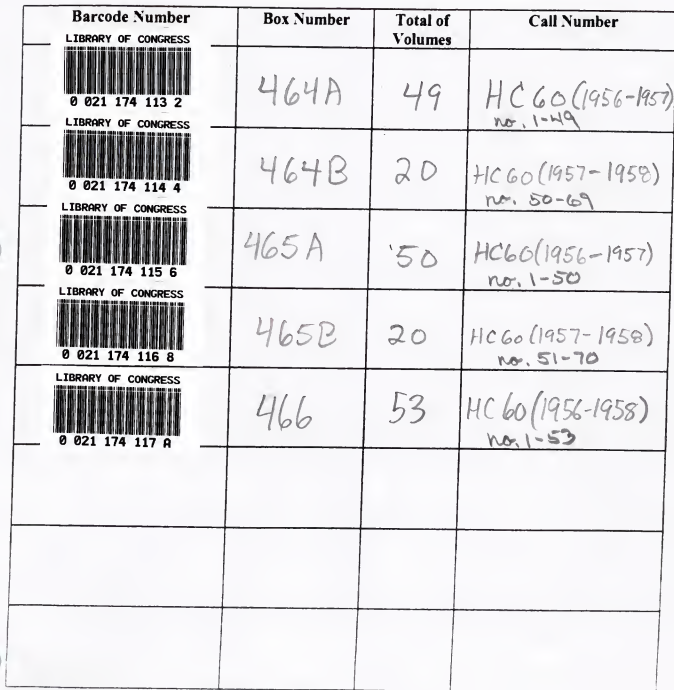 Barcode Number Box Number Total of Volumes Call Number
LIBRARY OF CONGRESS
0 021 174 113 2
464A 49 HC60(1956-1957)
no. 1-49
LIBRARY OF CONGRESS
0 021 174 114 4
464B 20 HC60(1957-1958)
no. 50-69
LIBRARY OF CONGRESS
0 021 174 115 6
465A 50 HC60(1956-1957)
no. 1-50
LIBRARY OF CONGRESS
0 021 174 116 8
465B 20 HC60(1957-1958)
no. 51-70
LIBRARY OF CONGRESS
0 021 174 117 A
466 53 HC60(1956-1958)
no. 1-53